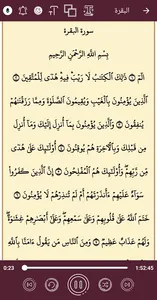 البقرة
سورة البقرة
بِسْمِ اللَّهِ الرَّحْمَٰنِ الرَّحِيمِ
الم ۝ ذَٰلِكَ الْكِتَابُ لَا رَيْبَ فِيهِ هُدًى لِّلْمُتَّقِينَ ۝
الَّذِينَ يُؤْمِنُونَ بِالْغَيْبِ وَيُقِيمُونَ الصَّلَوٰةَ وَمِمَّا رَزَقْنَٰهُمْ
يُنفِقُونَ ۝ وَالَّذِينَ يُؤْمِنُونَ بِمَا أُنزِلَ إِلَيْكَ وَمَا أُنزِلَ
مِن قَبْلِكَ وَبِالْآخِرَةِ هُمْ يُوقِنُونَ ۝ أُولَٰئِكَ عَلَىٰ هُدًى
مِّن رَّبِّهِمْ وَأُولَٰئِكَ هُمُ الْمُفْلِحُونَ ۝ إِنَّ الَّذِينَ كَفَرُوا
سَوَاءٌ عَلَيْهِمْ ءَأَنذَرْتَهُمْ أَمْ لَمْ تُنذِرْهُمْ لَا يُؤْمِنُونَ ۝
خَتَمَ اللَّهُ عَلَىٰ قُلُوبِهِمْ وَعَلَىٰ سَمْعِهِمْ وَعَلَىٰ أَبْصَٰرِهِمْ غِشَٰوَةٌ
وَلَهُمْ عَذَابٌ عَظِيمٌ ۝ وَمِنَ النَّاسِ مَن يَقُولُ ءَامَنَّا بِاللَّهِ
0:23 1:52:45